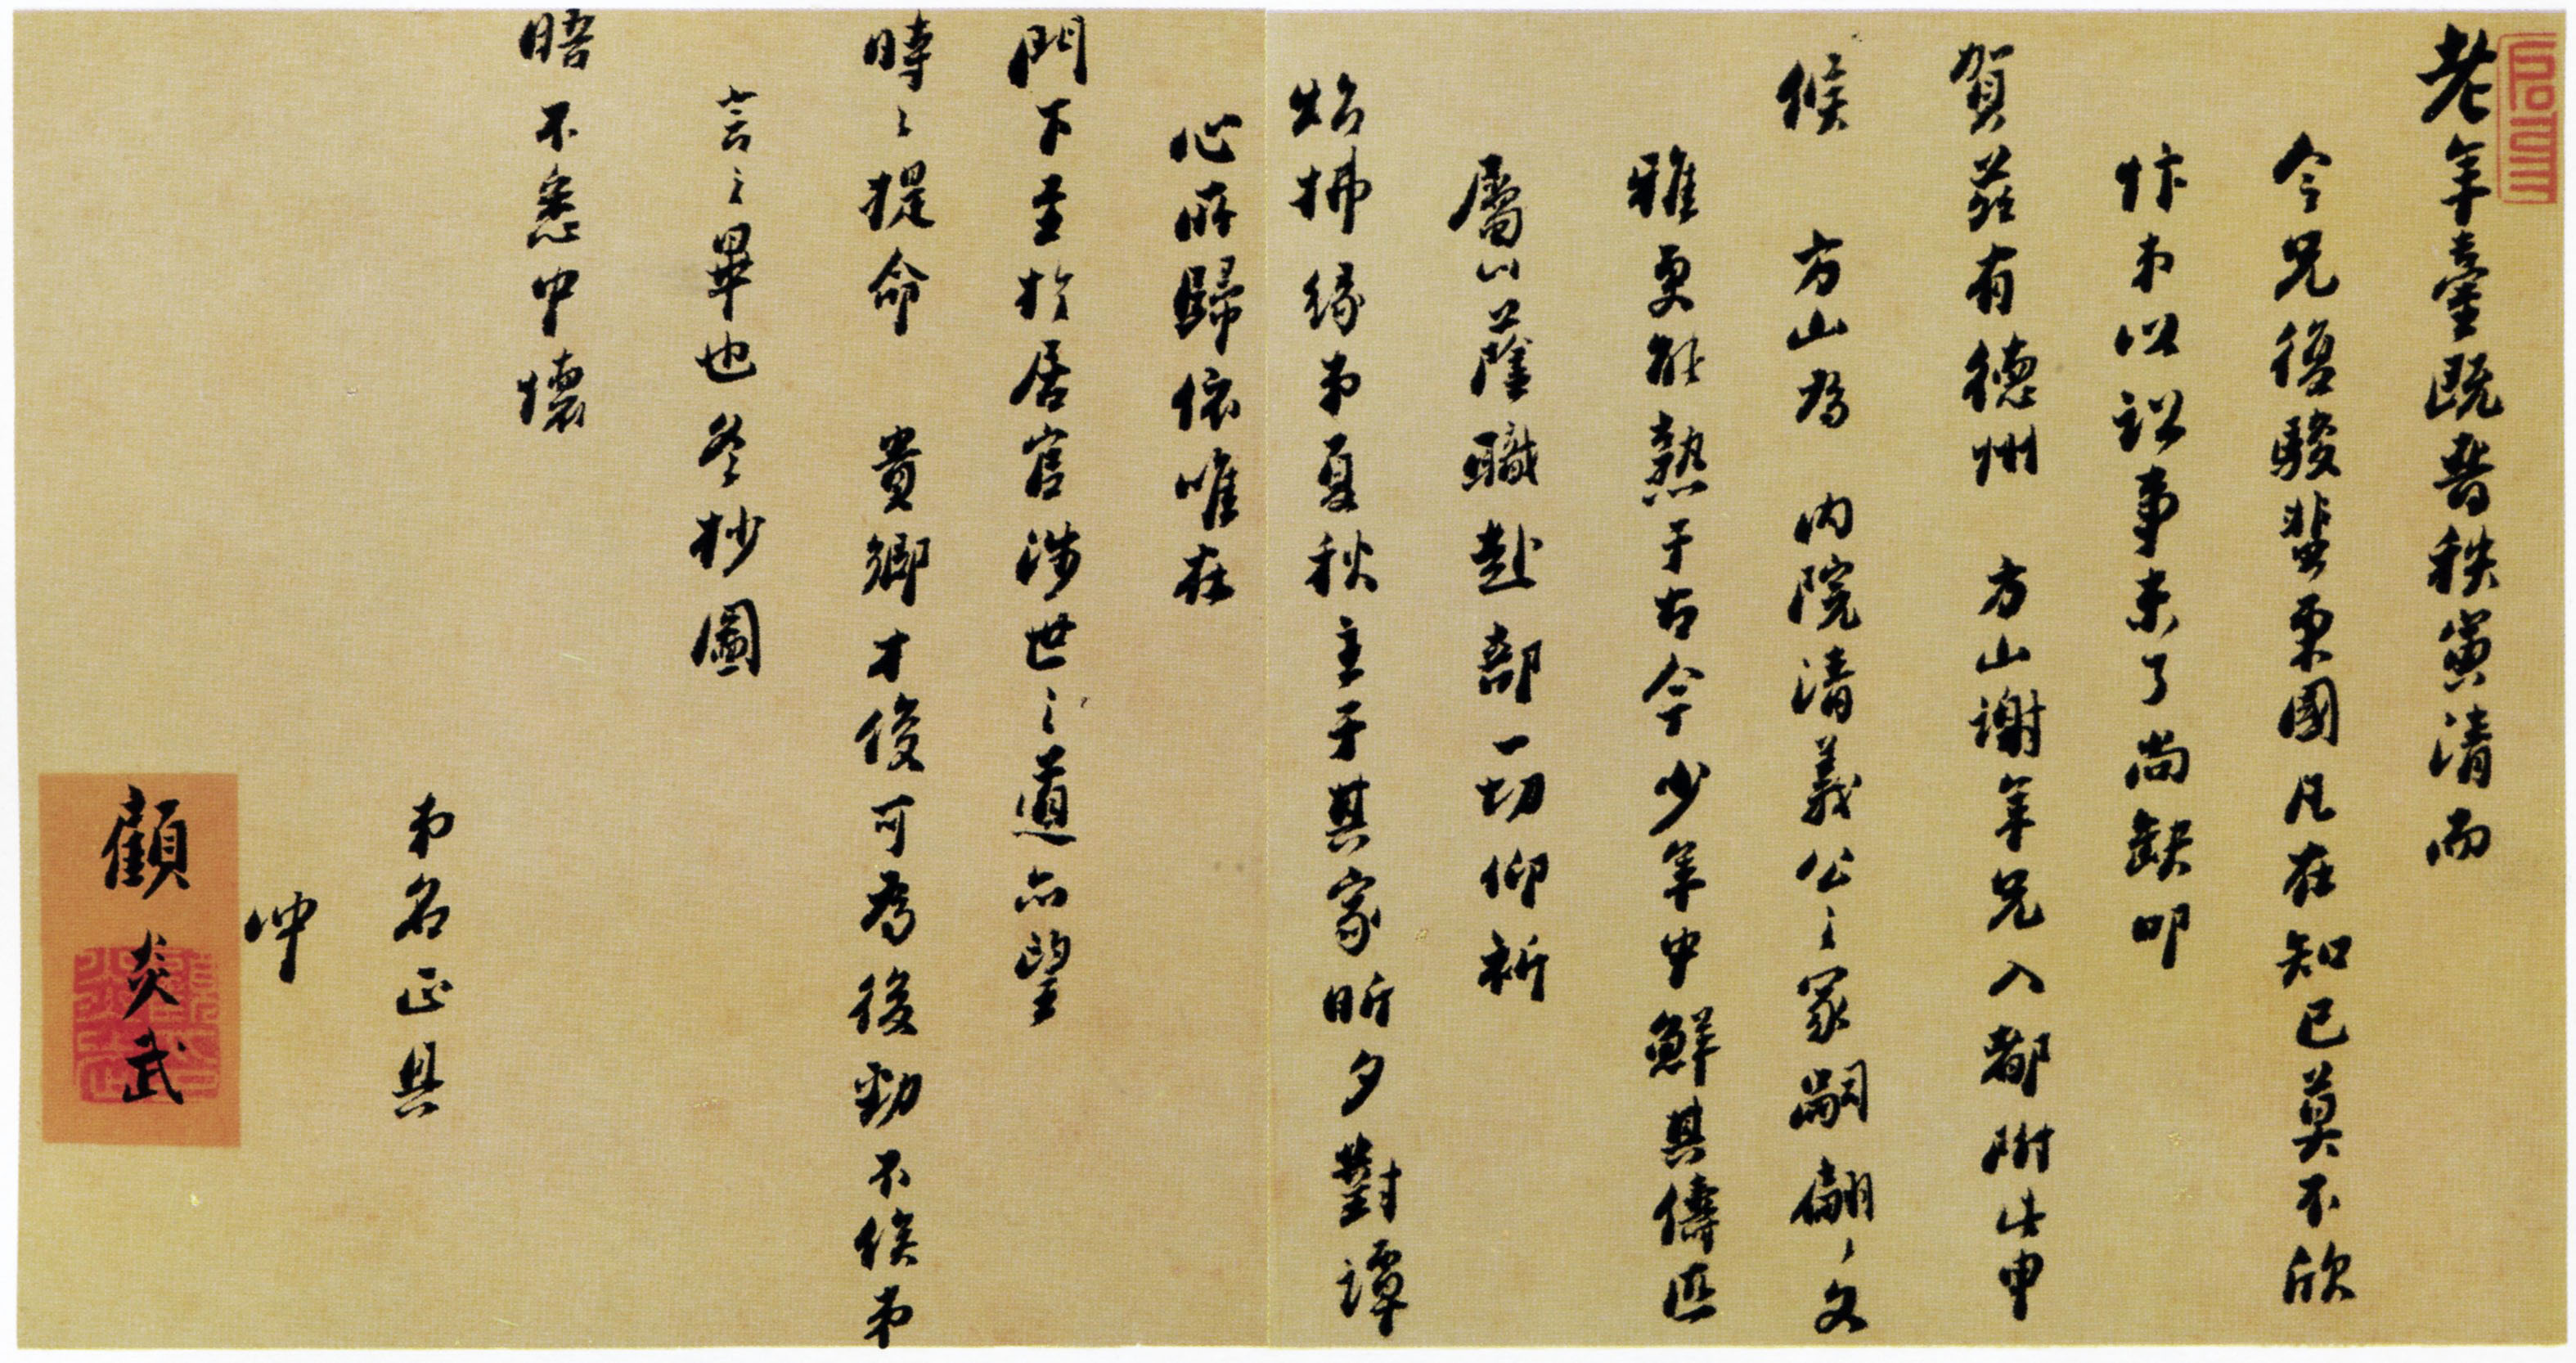 老年臺既晉秩寅清而
令兄復駿蜚東國凡在知己莫不欣
忭弟以訟事未了尚缺叩
賀茲有德州 方山謝年兄入都附此申
候 方山為 內院清義公之冢嗣翩〻文
雅更能熟于古今少年中鮮其儔匹
屬以蔭職赴部一切仰祈
炤拂緣弟夏秋主于其家昕夕對譚
心所歸依唯在
門下至於居官涉世之道亦望
時〻提命 貴鄉才俊可為後勁不俟弟
言之畢也冬抄圖
晤不悉中懷
弟名正具
沖
顧炎武